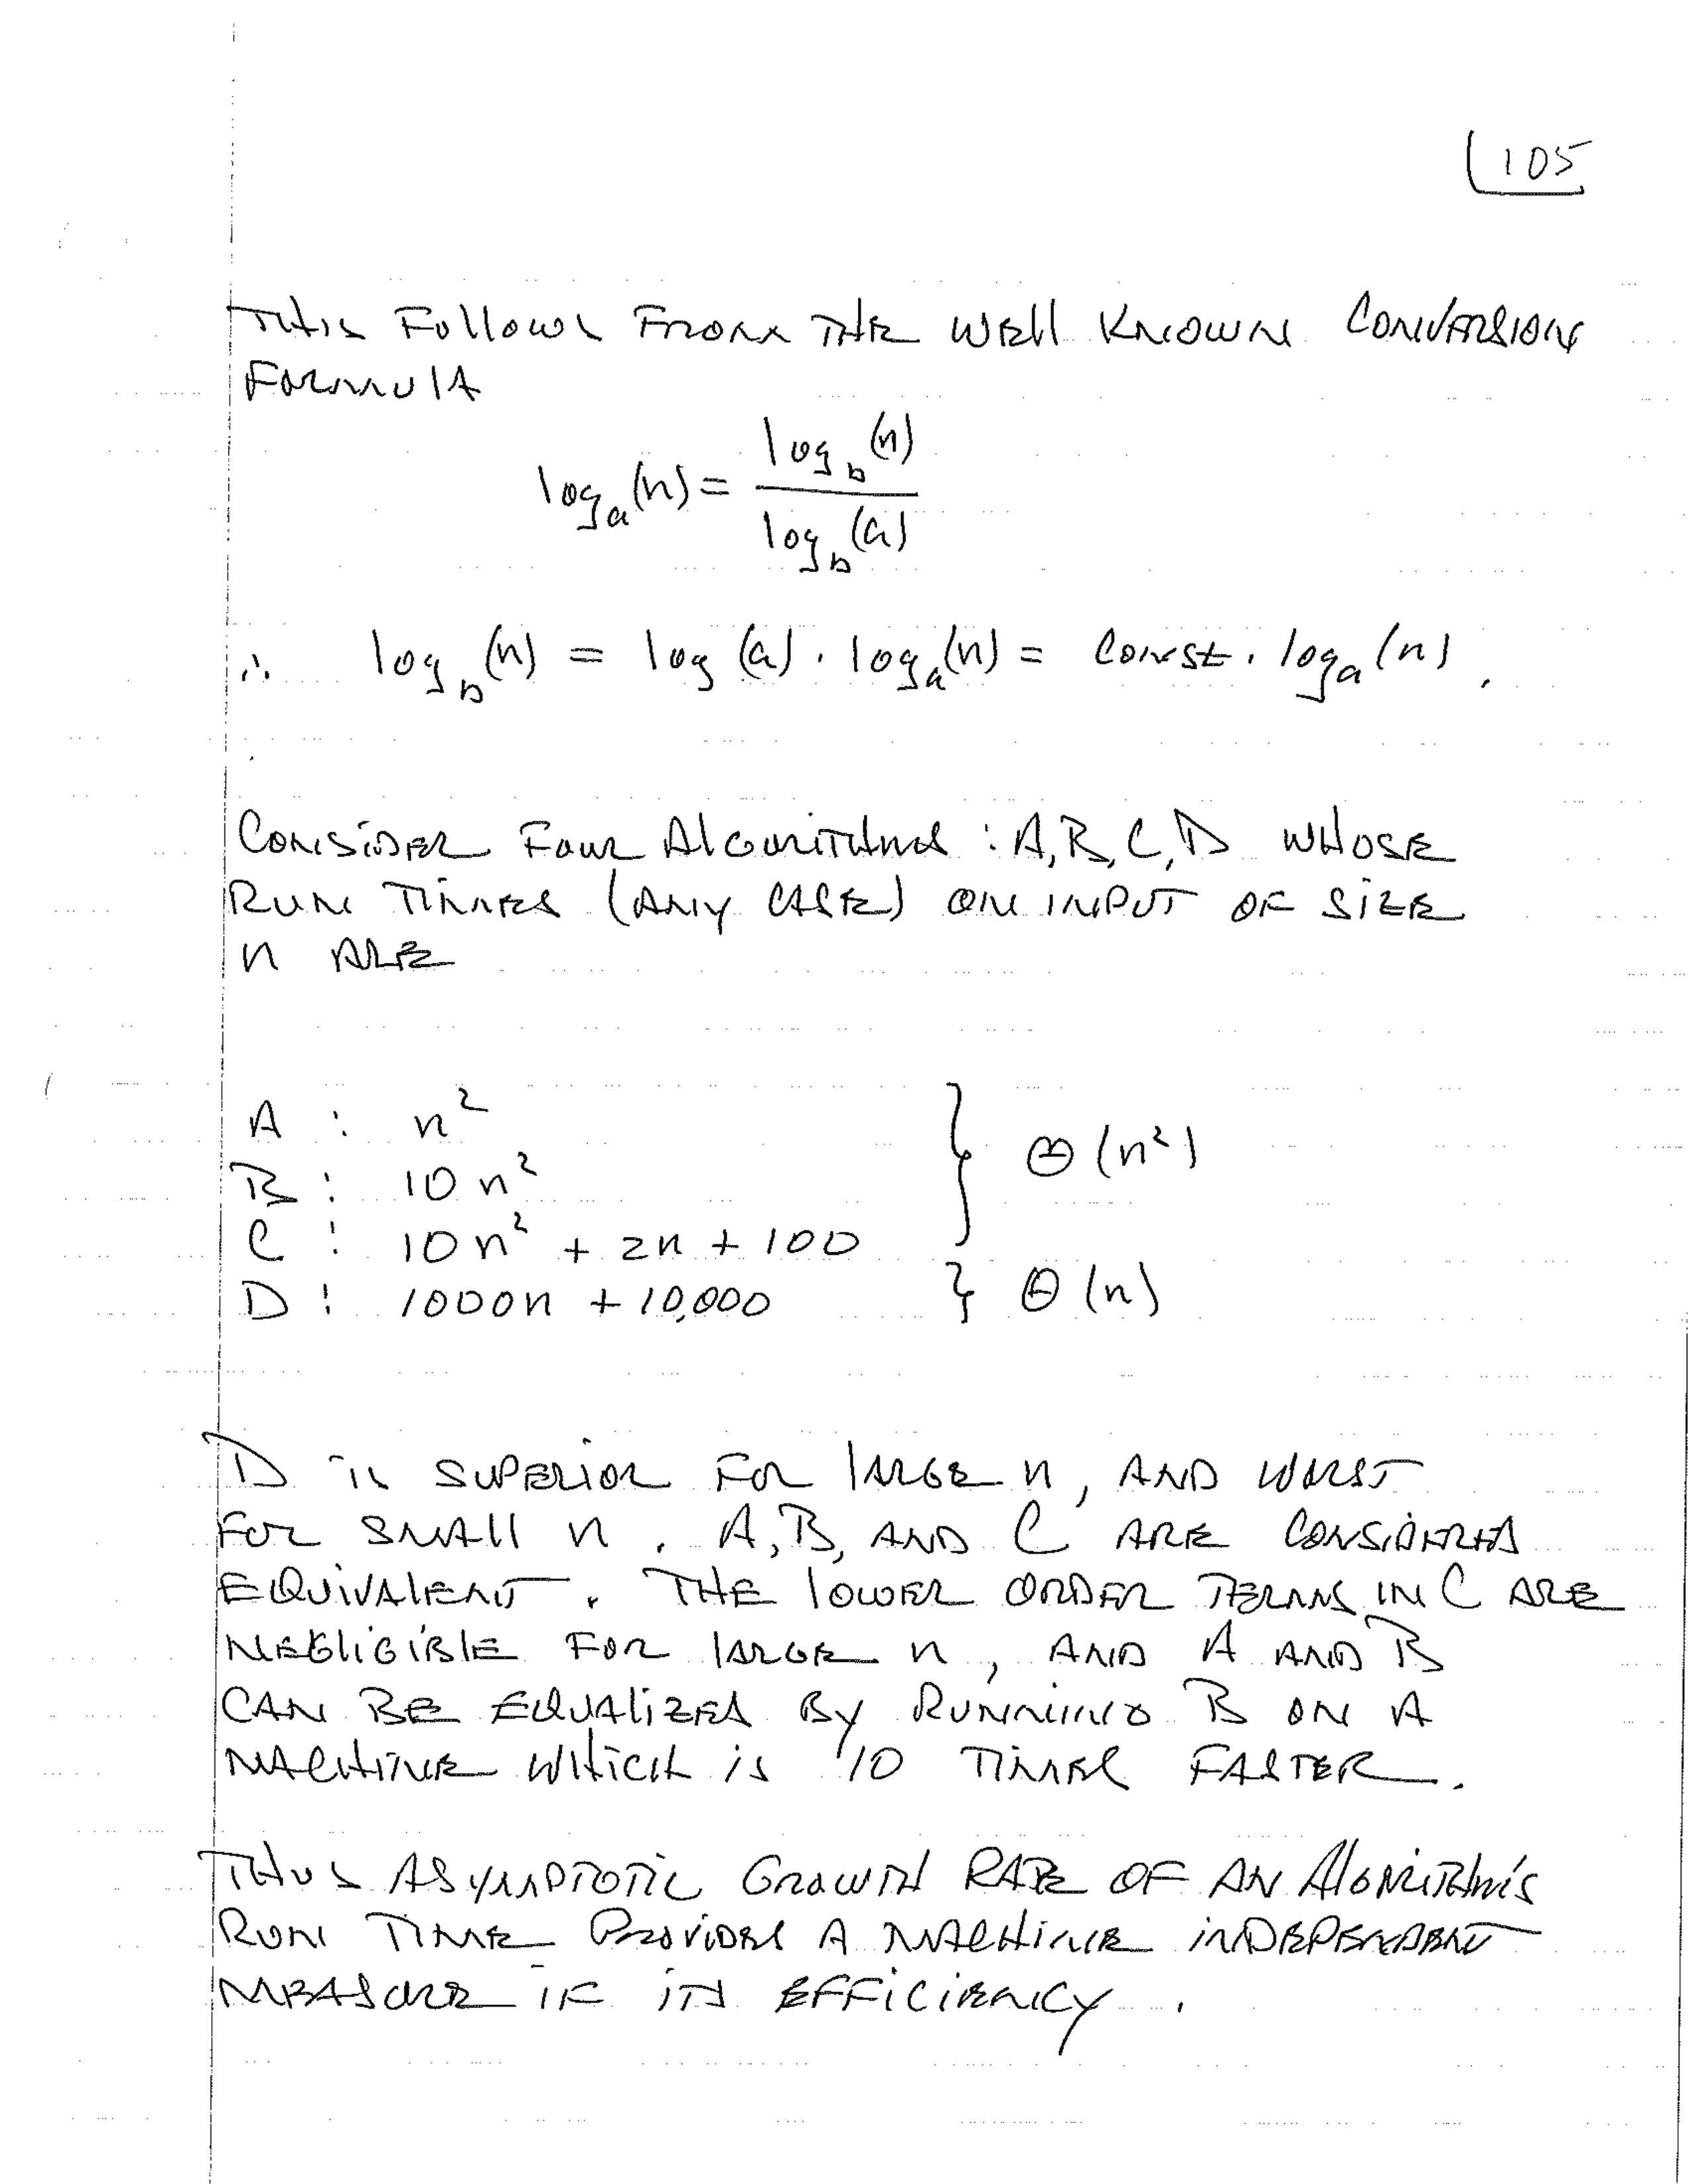 105
THIS FOLLOWS FROM THE WELL KNOWN CONVERSION
FORMULA
log_a(n) = log_b(n) / log_b(a)
∴ log_b(n) = log(a) · log_a(n) = const · log_a(n).
CONSIDER FOUR ALGORITHMS : A, B, C, D WHOSE
RUN TIMES (ANY CASE) ON INPUT OF SIZE
n ARE
A : n²
B : 10n²
C : 10n² + 2n + 100
} Θ(n²)
D : 1000n + 10,000 } Θ(n)
D IS SUPERIOR FOR LARGE n, AND WORST
FOR SMALL n. A, B, AND C ARE CONSIDERED
EQUIVALENT. THE LOWER ORDER TERMS IN C ARE
NEGLIGIBLE FOR LARGE n, AND A AND B
CAN BE EQUALIZED BY RUNNING B ON A
MACHINE WHICH IS 10 TIMES FASTER.
THUS ASYMPTOTIC GROWTH RATE OF AN ALGORITHM'S
RUN TIME PROVIDES A MACHINE INDEPENDENT
MEASURE IF ITS EFFICIENCY.